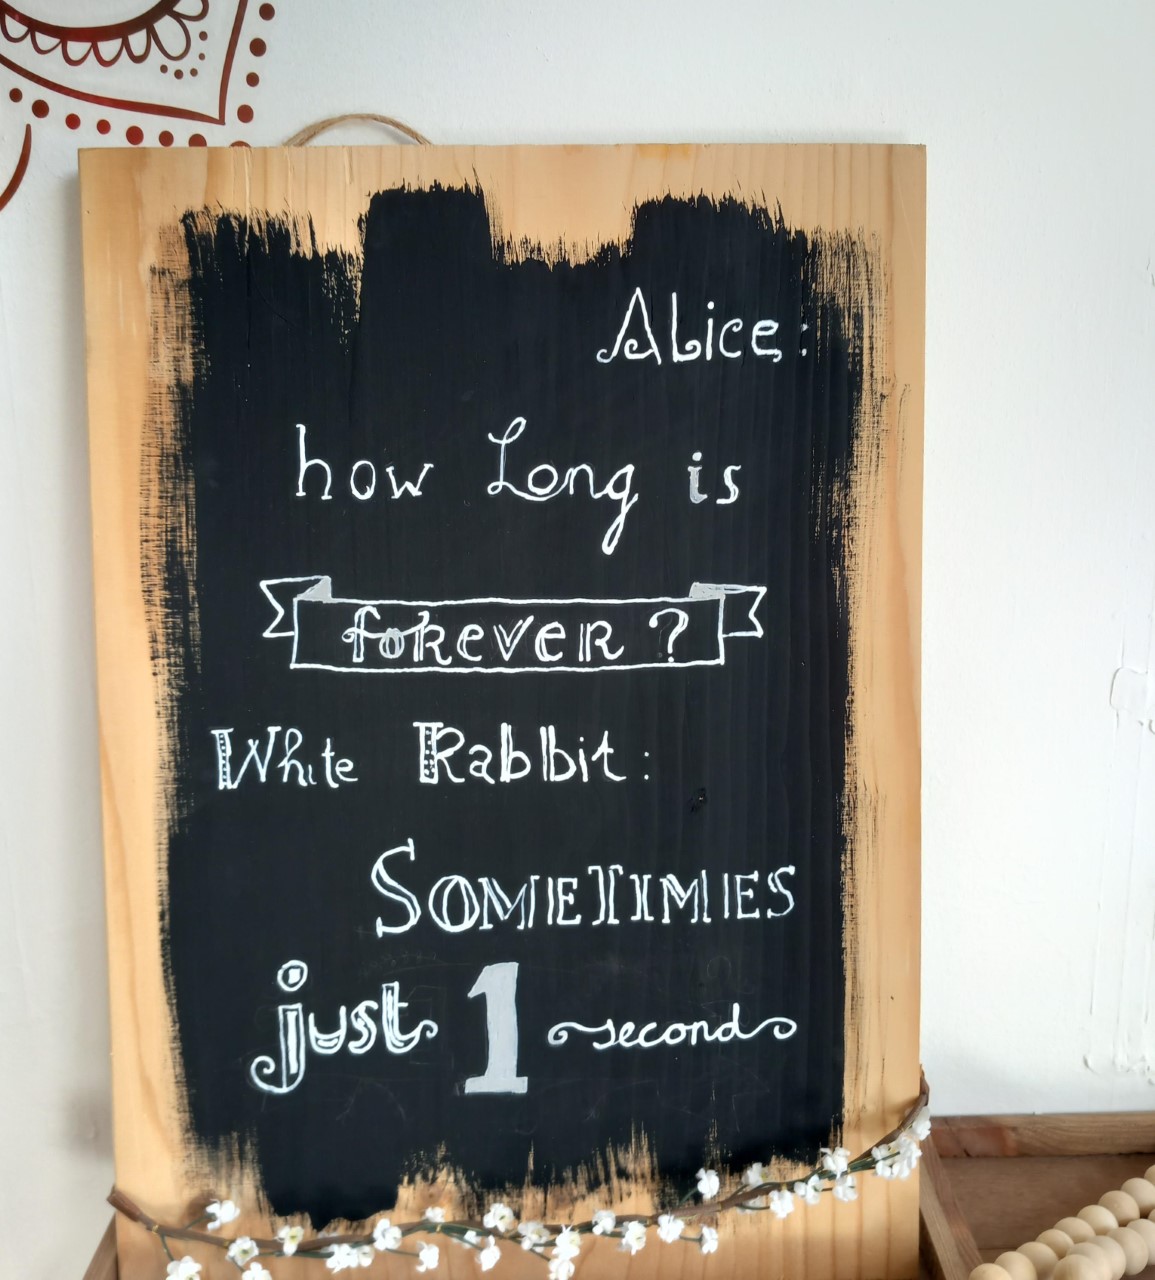 Alice:
how Long is
forever?
White Rabbit:
SOMETIMES
just 1 second